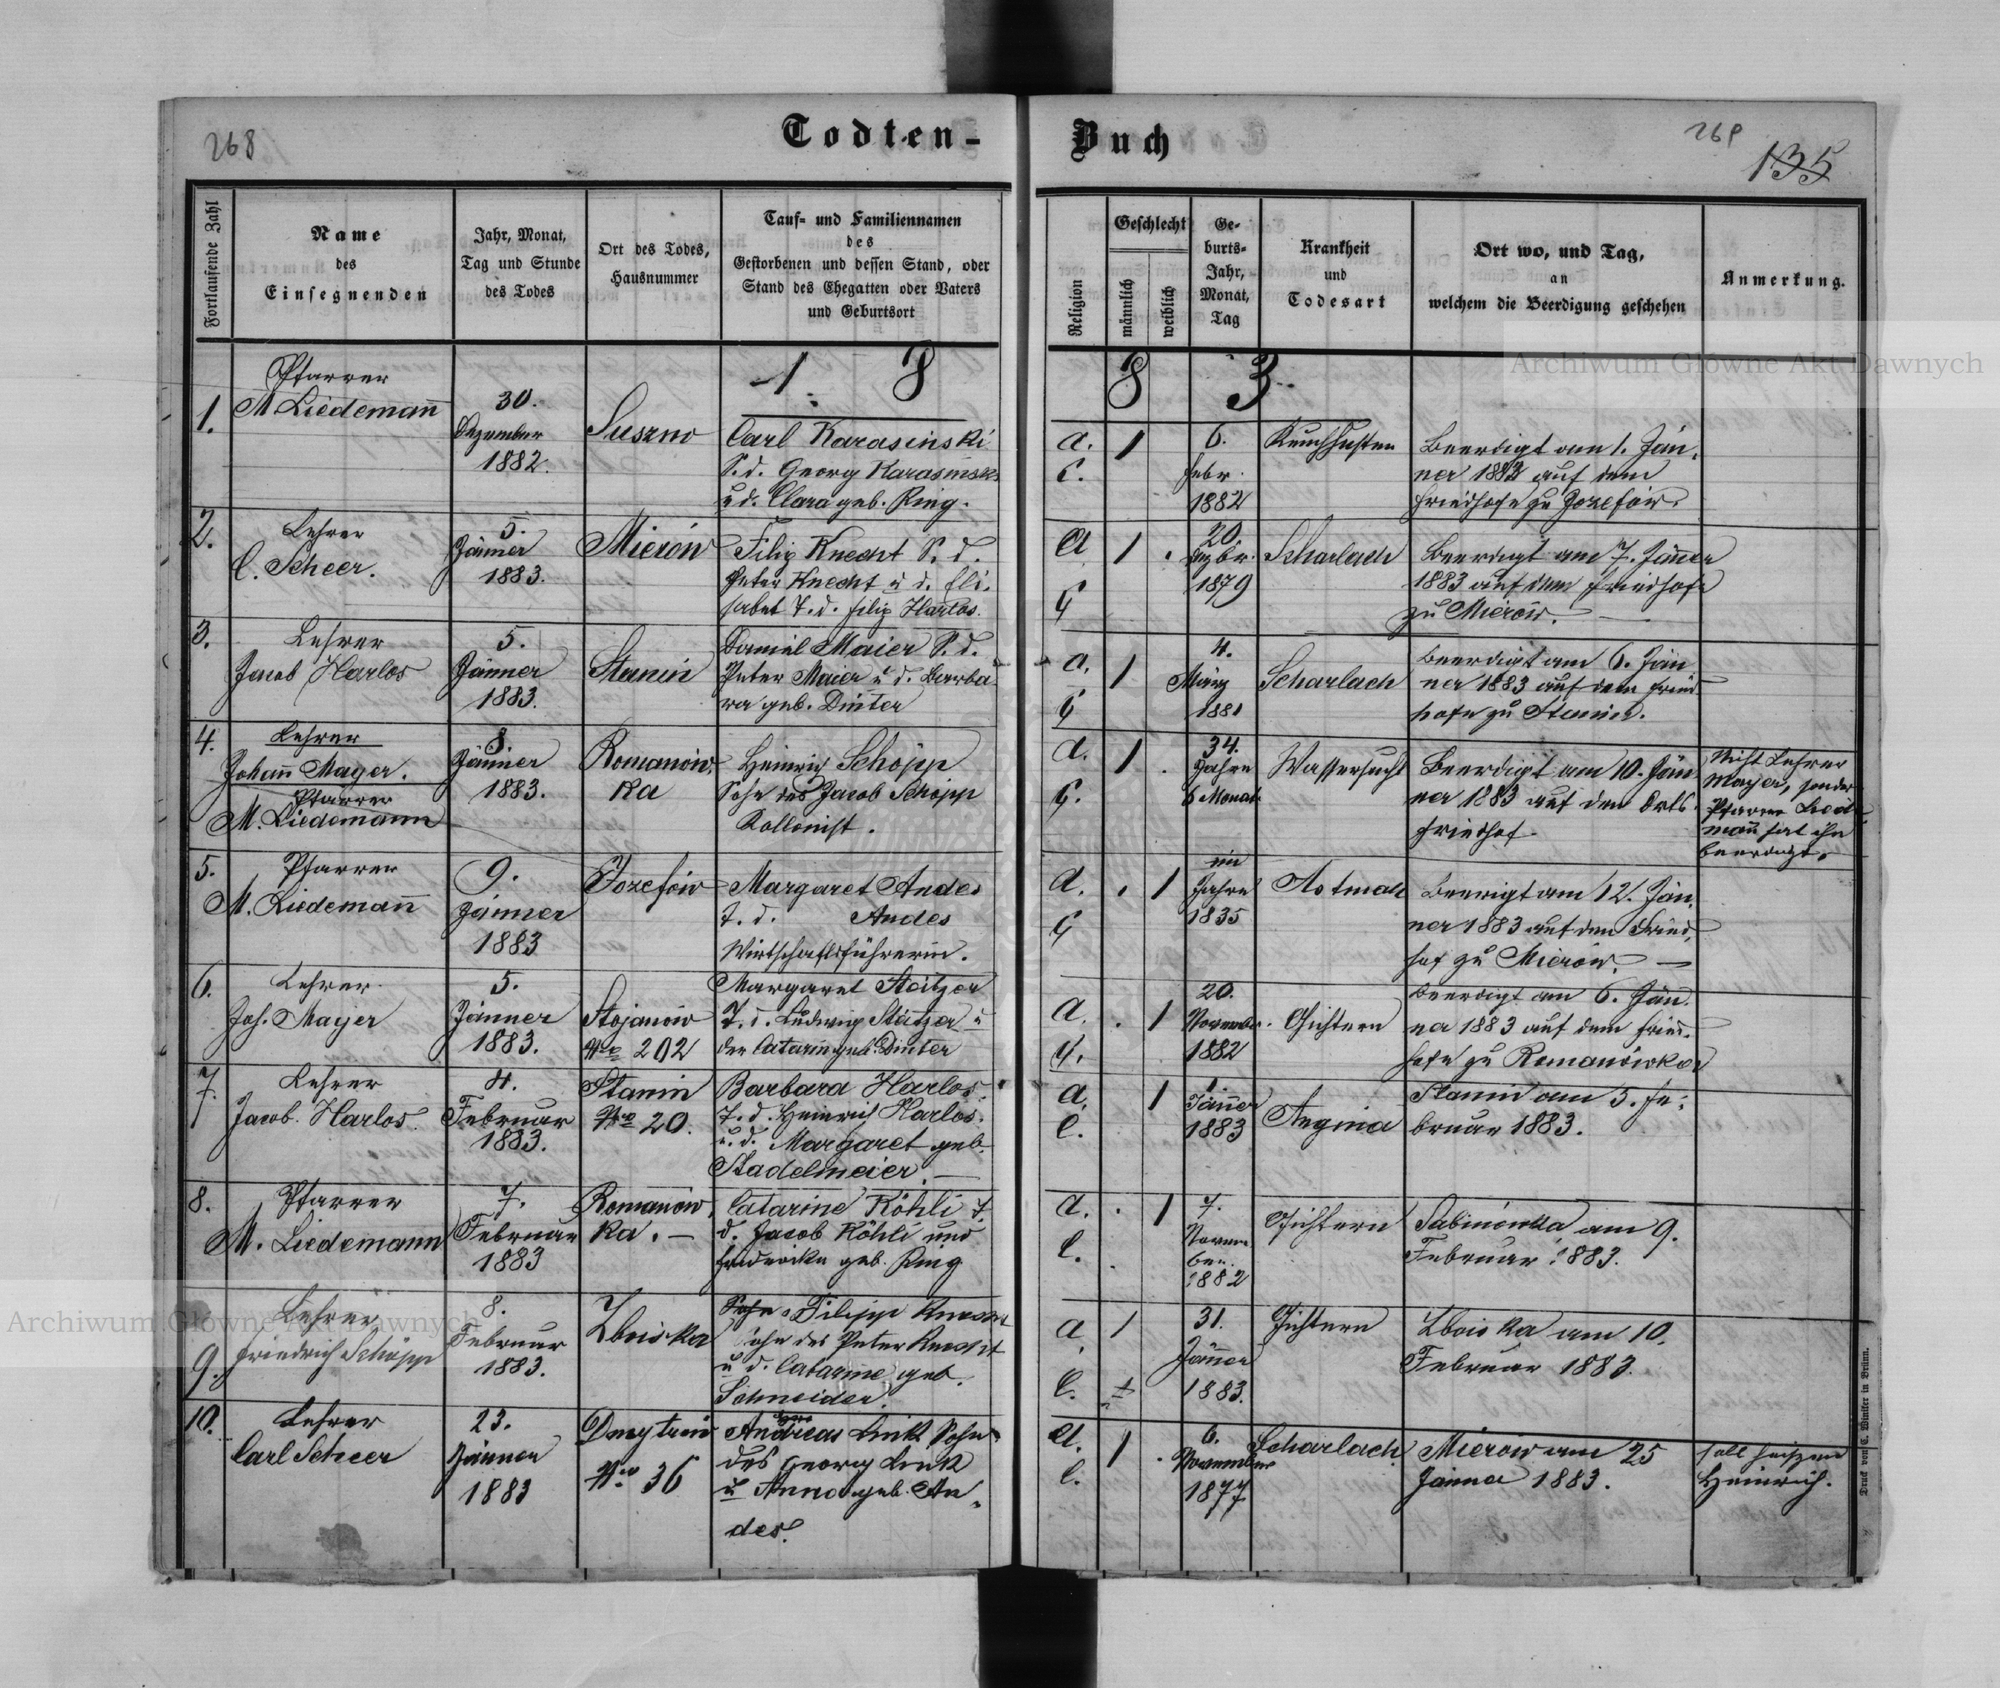 268
Todten-
Buch
269
135
Fortlaufende Zahl
Name
des
Einsegnenden
Jahr, Monat,
Tag und Stunde
des Todes
Ort des Todes,
Hausnummer
Tauf- und Familiennamen
des
Gestorbenen und dessen Stand, oder
Stand des Ehegatten oder Vaters
und Geburtsort
Religion
Geschlecht
männlich
weiblich
Ge-
burts-
Jahr,
Monat,
Tag
Krankheit
und
Todesart
Ort wo, und Tag,
an
welchem die Beerdigung geschehen
Anmerkung.
1 8
8 3
1.
Pfarrer
M Liedemañ
30.
Dezember
1882.
Suszno
Carl Karasinski
S. d. Georg Karasinski
u d. Clara geb. Ring.
a.
C.
1
6.
Febr.
1882
Keuchhusten
Beerdigt am 1. Jän-
ner 1883 auf dem
Friedhofe zu Jozefów.
2.
Lehrer
C. Scheer.
5.
Jänner
1883.
Mierów
Filip Knecht S. d.
Peter Knecht u d. Eli-
sabet T. d. Filip Harlos.
a
1
20.
Dezbr.
1879
Scharlach
Beerdigt am 7. Jäner
1883 auf dem Friedhofe
zu Mierów.
3.
Lehrer
Jacob Harlos
5.
Jänner
1883.
Stanin
Daniel Maier S. d.
Peter Maier u d. Barba-
ra geb. Dinter
a.
1
4.
März
1881
Scharlach
Beerdigt am 6. Jän
ner 1883 auf dem Fried-
hofe zu Stanin.
4.
Lehrer
Johañ Mayer.
Pfarrer
M. Liedemann
8.
Jänner
1883.
Romanów-
ka
Heinrich Schöpp
Sohn des Jacob Schöpp
Kollonist.
a.
1
34.
Jahre
6 Monate
Wassersucht
Beerdigt am 10. Jän
ner 1883 auf den Orts-
friedhof.
Nicht Lehrer
Mayer, sonder
Pfarrer Lied-
mañ hat ihn
beerdigt.
5.
Pfarrer
M. Liedemañ
9.
Jänner
1883
Jozefów
Margaret Andes
T. d. Andes
Wirtschaftsführerin.
a.
1
im
Jahre
1835
Astmah
Beerigt am 12. Jän-
ner 1883 auf den Fried-
hof zu Mierów.
6.
Lehrer
Joh. Mayer
5.
Jänner
1883.
Stojanów
Nro 202
Margaret Steitzer
T. d. Ludwig Steitzer u
der Catarin geb. Dinter
a.
1
20.
November
1882
Gichtern
Beerdigt am 6. Jän-
ner 1883 auf dem Fried-
hofe zu Romanówka
7.
Lehrer
Jacob Harlos
4.
Februar
1883.
Stanin
Nro 20.
Barbara Harlos
T. d. Heinrich Harlos
u. d. Margaret geb.
Stadelmeier.
a.
C.
1
1.
Jäner
1883
Angina
Stanin am 5. Fe-
bruar 1883.
8.
Pfarrer
M. Liedemann
7.
Februar
1883
Romanów-
ka.
Catarine Köhli T.
d. Jacob Köhli und
Friederike geb. Ring
a.
C.
1
7.
Novem
ber
1882
Gichtern
Sabinówka am 9.
Februar 1883.
9.
Lehrer
Friedrich Schöpp
8.
Februar
1883.
Zboiska
Sohn Filipp Knecht
Sohn des Peter Knecht
u d. Catarine geb.
Schneider.
a
C.
1
31.
Jäner
1883.
Gichtern
Zboiska am 10.
Februar 1883.
10.
Lehrer
Carl Scheer
23.
Jänner
1883
Dmytrów
Nro 36
Andreas Link Sohn
des Georg Link
u Anna geb. An-
des.
a.
C.
1
6.
November
1877
Scharlach
Mierów am 25
Jänner 1883.
soll heiszen
Heinrich.
Druck von C. Winiker in Brünn.
Archiwum Główne Akt Dawnych
Archiwum Główne Akt Dawnych